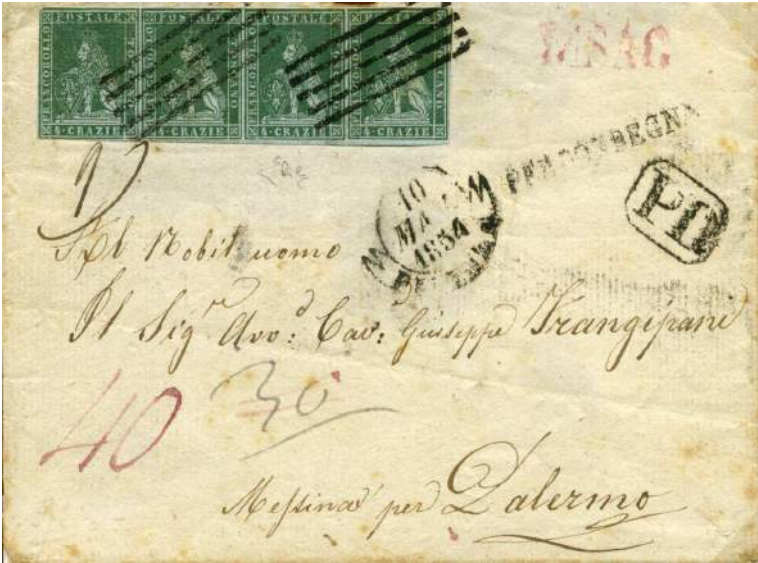 FRANCOBOLLO POSTALE TOSCANO 4 CRAZIE
FRANCOBOLLO POSTALE TOSCANO 4 CRAZIE
FRANCOBOLLO POSTALE TOSCANO 4 CRAZIE
FRANCOBOLLO POSTALE TOSCANO 4 CRAZIE
PER CONSEGNA
PD
10
MAG
1854
Al Nobil uomo
Il Sig.r Avv: Cav: Giuseppe Frangipani
40 30
Messina per Palermo